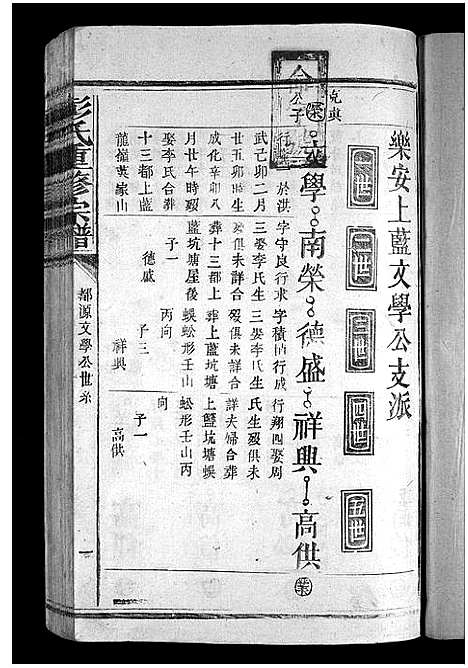 樂安上藍文學公支派
一世
二世
三世
四世
五世
克典
公子
文學
南榮
德盛
祥興
高供
行
於洪
武己卯二月
廿五卯時生
成化辛卯十
月廿午時歿
娶李氏合葬
十三都上藍
龍嶺英家山
字守良行求
三娶李氏生
歿俱未詳合
葬十三都上
藍坑塘屋後
子一
德盛
字積 行成
三娶李氏生
歿俱未詳合
葬上藍坑塘
蜈蚣形壬山
丙向
子三
祥興
行翔四娶周
氏生歿俱未
詳夫婦合葬
上藍坑塘蜈
蚣形壬山丙
向
子一
高供
彭氏重修宗譜
都源文學公世系
一